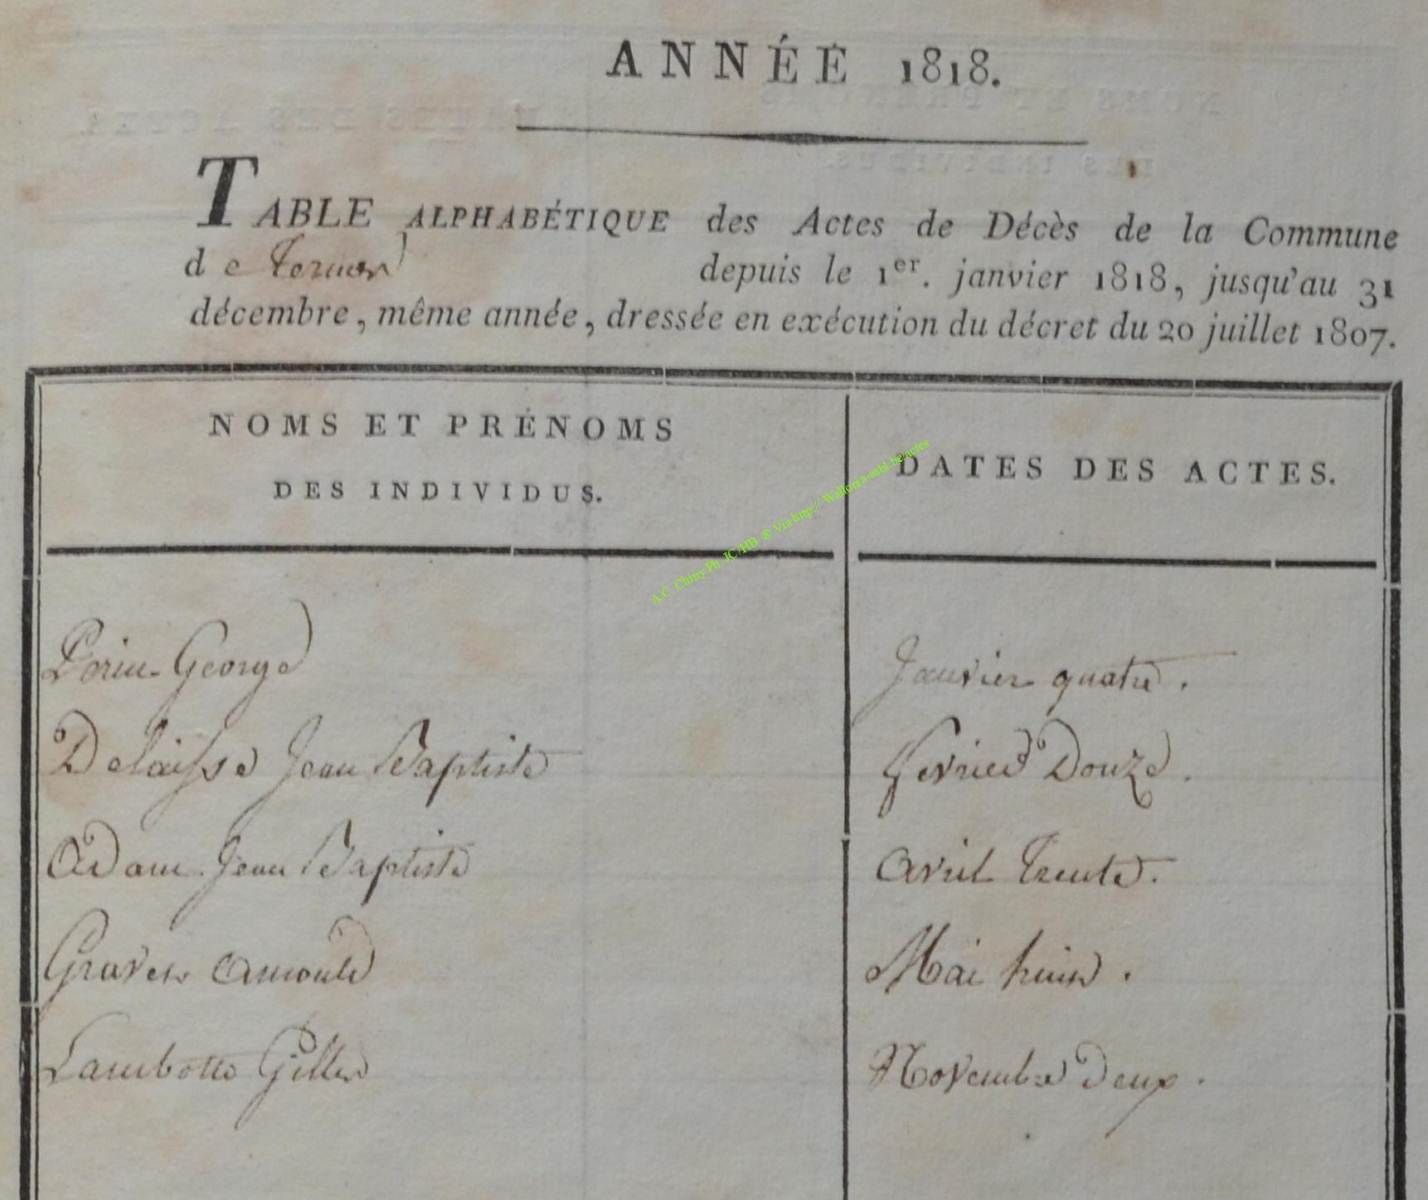 ANNÉE 1818.
TABLE ALPHABÉTIQUE des Actes de Décès de la Commune
de Termes depuis le 1er. janvier 1818, jusqu'au 31
décembre, même année, dressée en exécution du décret du 20 juillet 1807.
NOMS ET PRÉNOMS
DES INDIVIDUS.
DATES DES ACTES.
A.C. Chiny Ph. JC/HH @ Via http://Wallonia-asbl.be/actes
George Janvier quatre.
Delaisse Jean Baptiste fevrier Douze.
Adam Jean Baptiste avril Trente.
Graven arnould Mai huit.
Lambotte Gilles Novembre Deux.